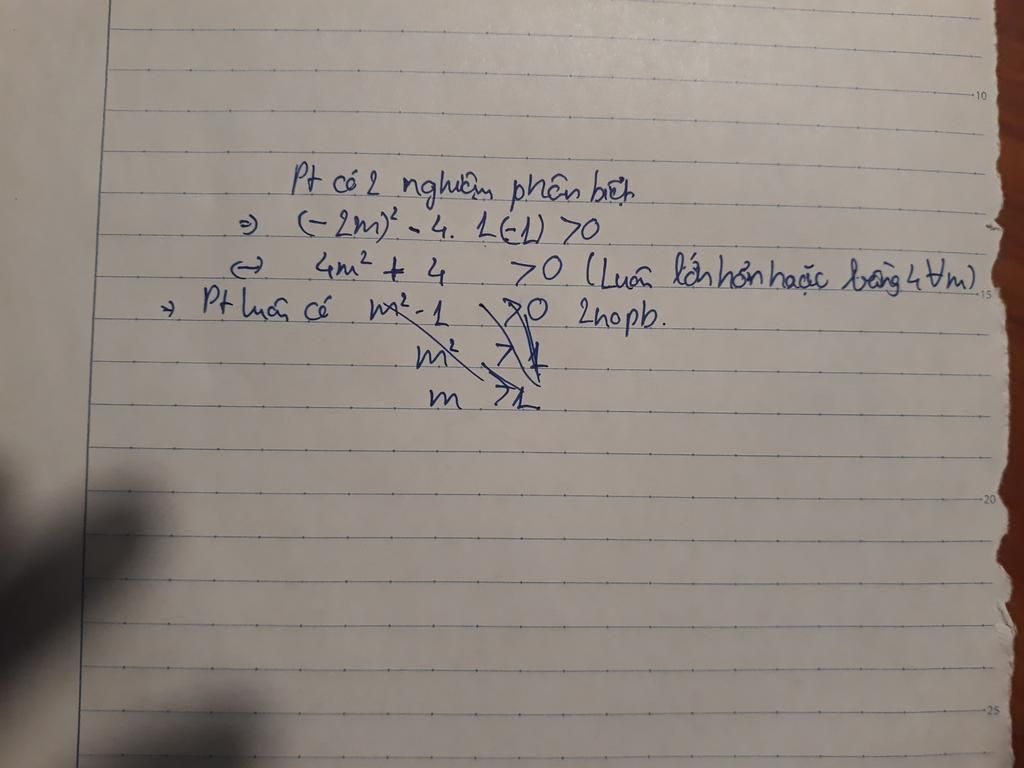 10
Pt có 2 nghiệm phân biệt
=> (-2m)² - 4. 1(-1) >0
<-> 4m² + 4 >0 (Luôn lớn hơn hoặc bằng 4 ∀m)
15
=> Pt luôn có m² - 1 >0 2nopb.
m² > 1
m >1
20
25